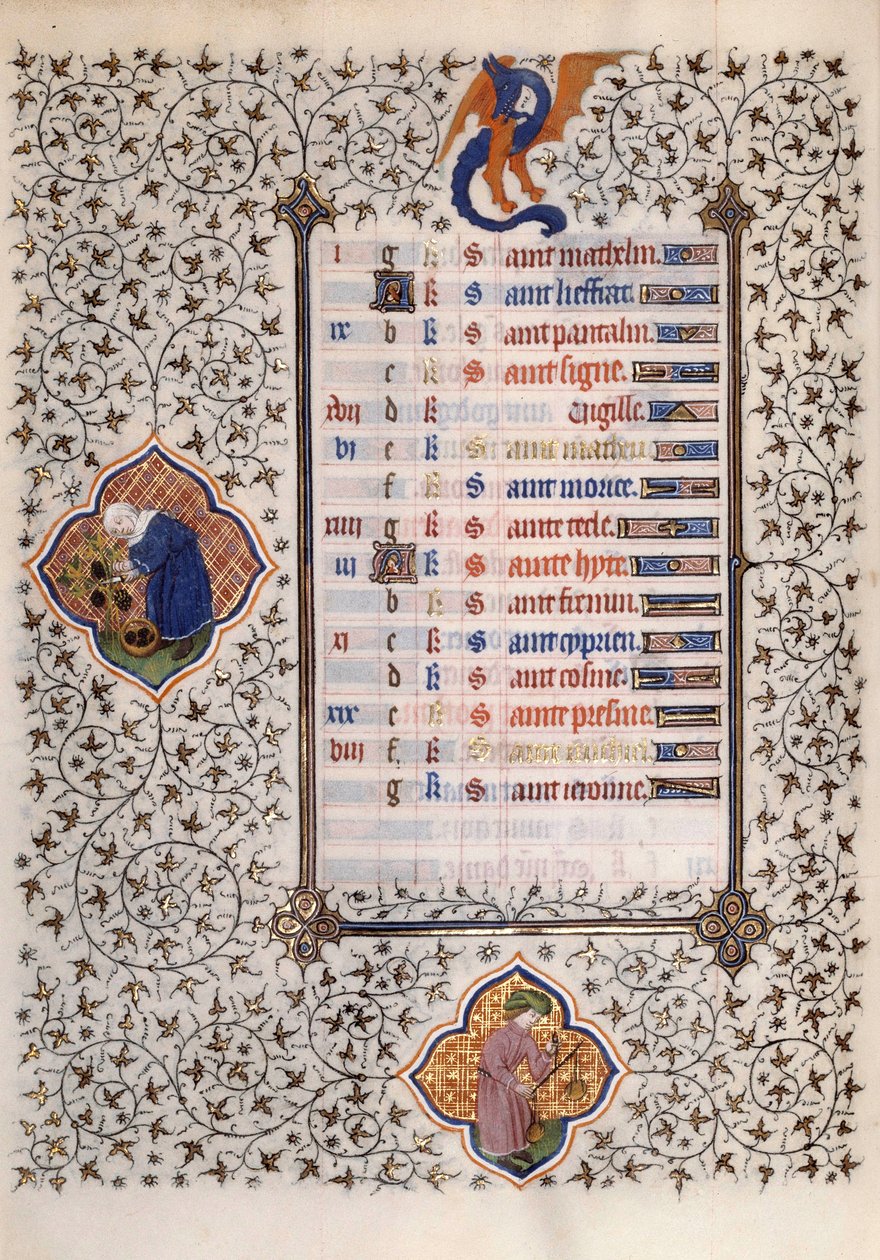 i g k Saint mathelin.
A k Saint lieffrat.
ix b k Saint pantalin.
c k Saint signe.
xvij d k Vigille.
vj e k Saint mathieu
f k Saint morice.
xiiij g k Sainte tecle.
iij A k Sainte hyte.
b k Saint firmin.
xj c k Saint cyprien.
d k Saint cosme.
xix e k Sainte presine.
viij f k Saint michiel.
g k Saint ieroime.